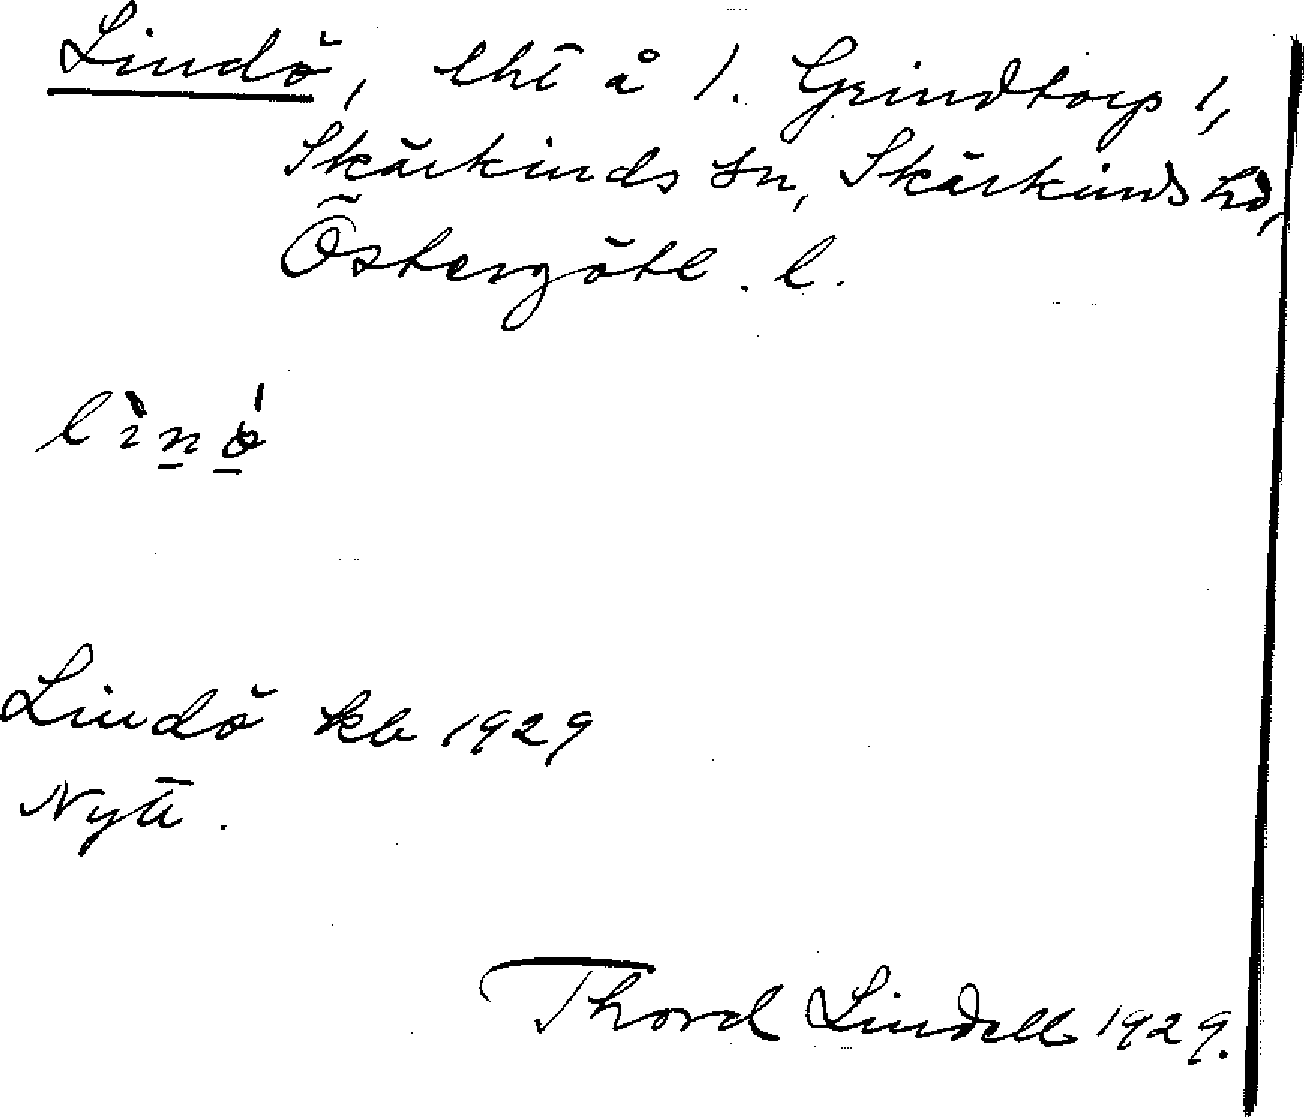 Lindö, lht å 1. Grindtorp 1,
Skärkinds sn, Skärkinds hd,
Östergötl. l.
lìnǿ
Lindö kb 1929
Nytt.
Thord Lindell 1929.